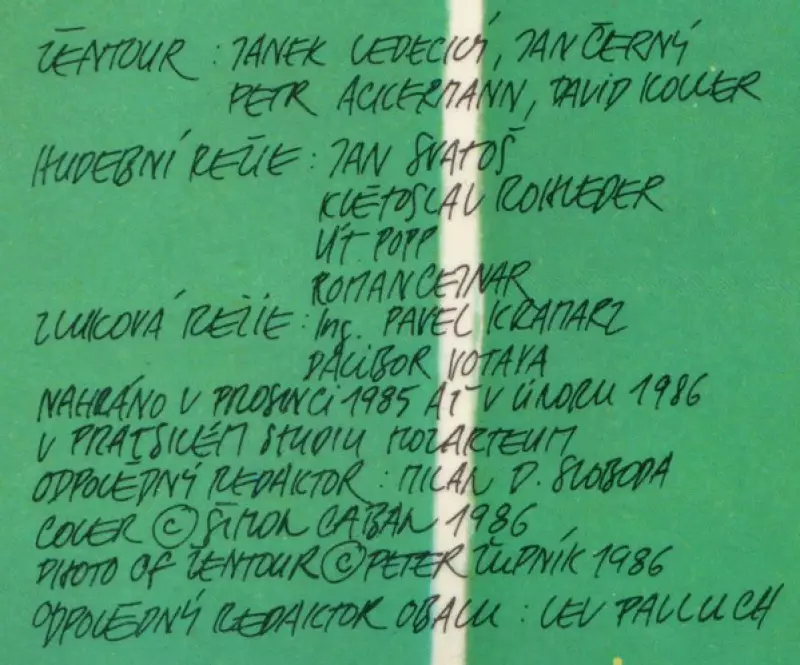 ŽENTOUR : JANEK LEDECKÝ, JAN ČERNÝ
PETR ACKERMANN, DAVID KOLLER
HUDEBNÍ REŽIE : JAN SVATOŠ
KVĚTOSLAV ROHLEDER
VÍT POPP
ROMAN CEJNAR
ZVUKOVÁ REŽIE : Ing. PAVEL KRAMARZ
DALIBOR VOTAVA
NAHRÁNO V PROSINCI 1985 AŽ V ÚNORU 1986
V PRAŽSKÉM STUDIU MOZARTEUM
ODPOLĚDNÝ REDAKTOR : MILAN D. SLOBODA
COVER © ŠIMON CABAN 1986
PHOTO OF ŽENTOUR © PETER ŽUPNÍK 1986
ODPOLĚDNÝ REDAKTOR OBALU : LEV PALLUCH